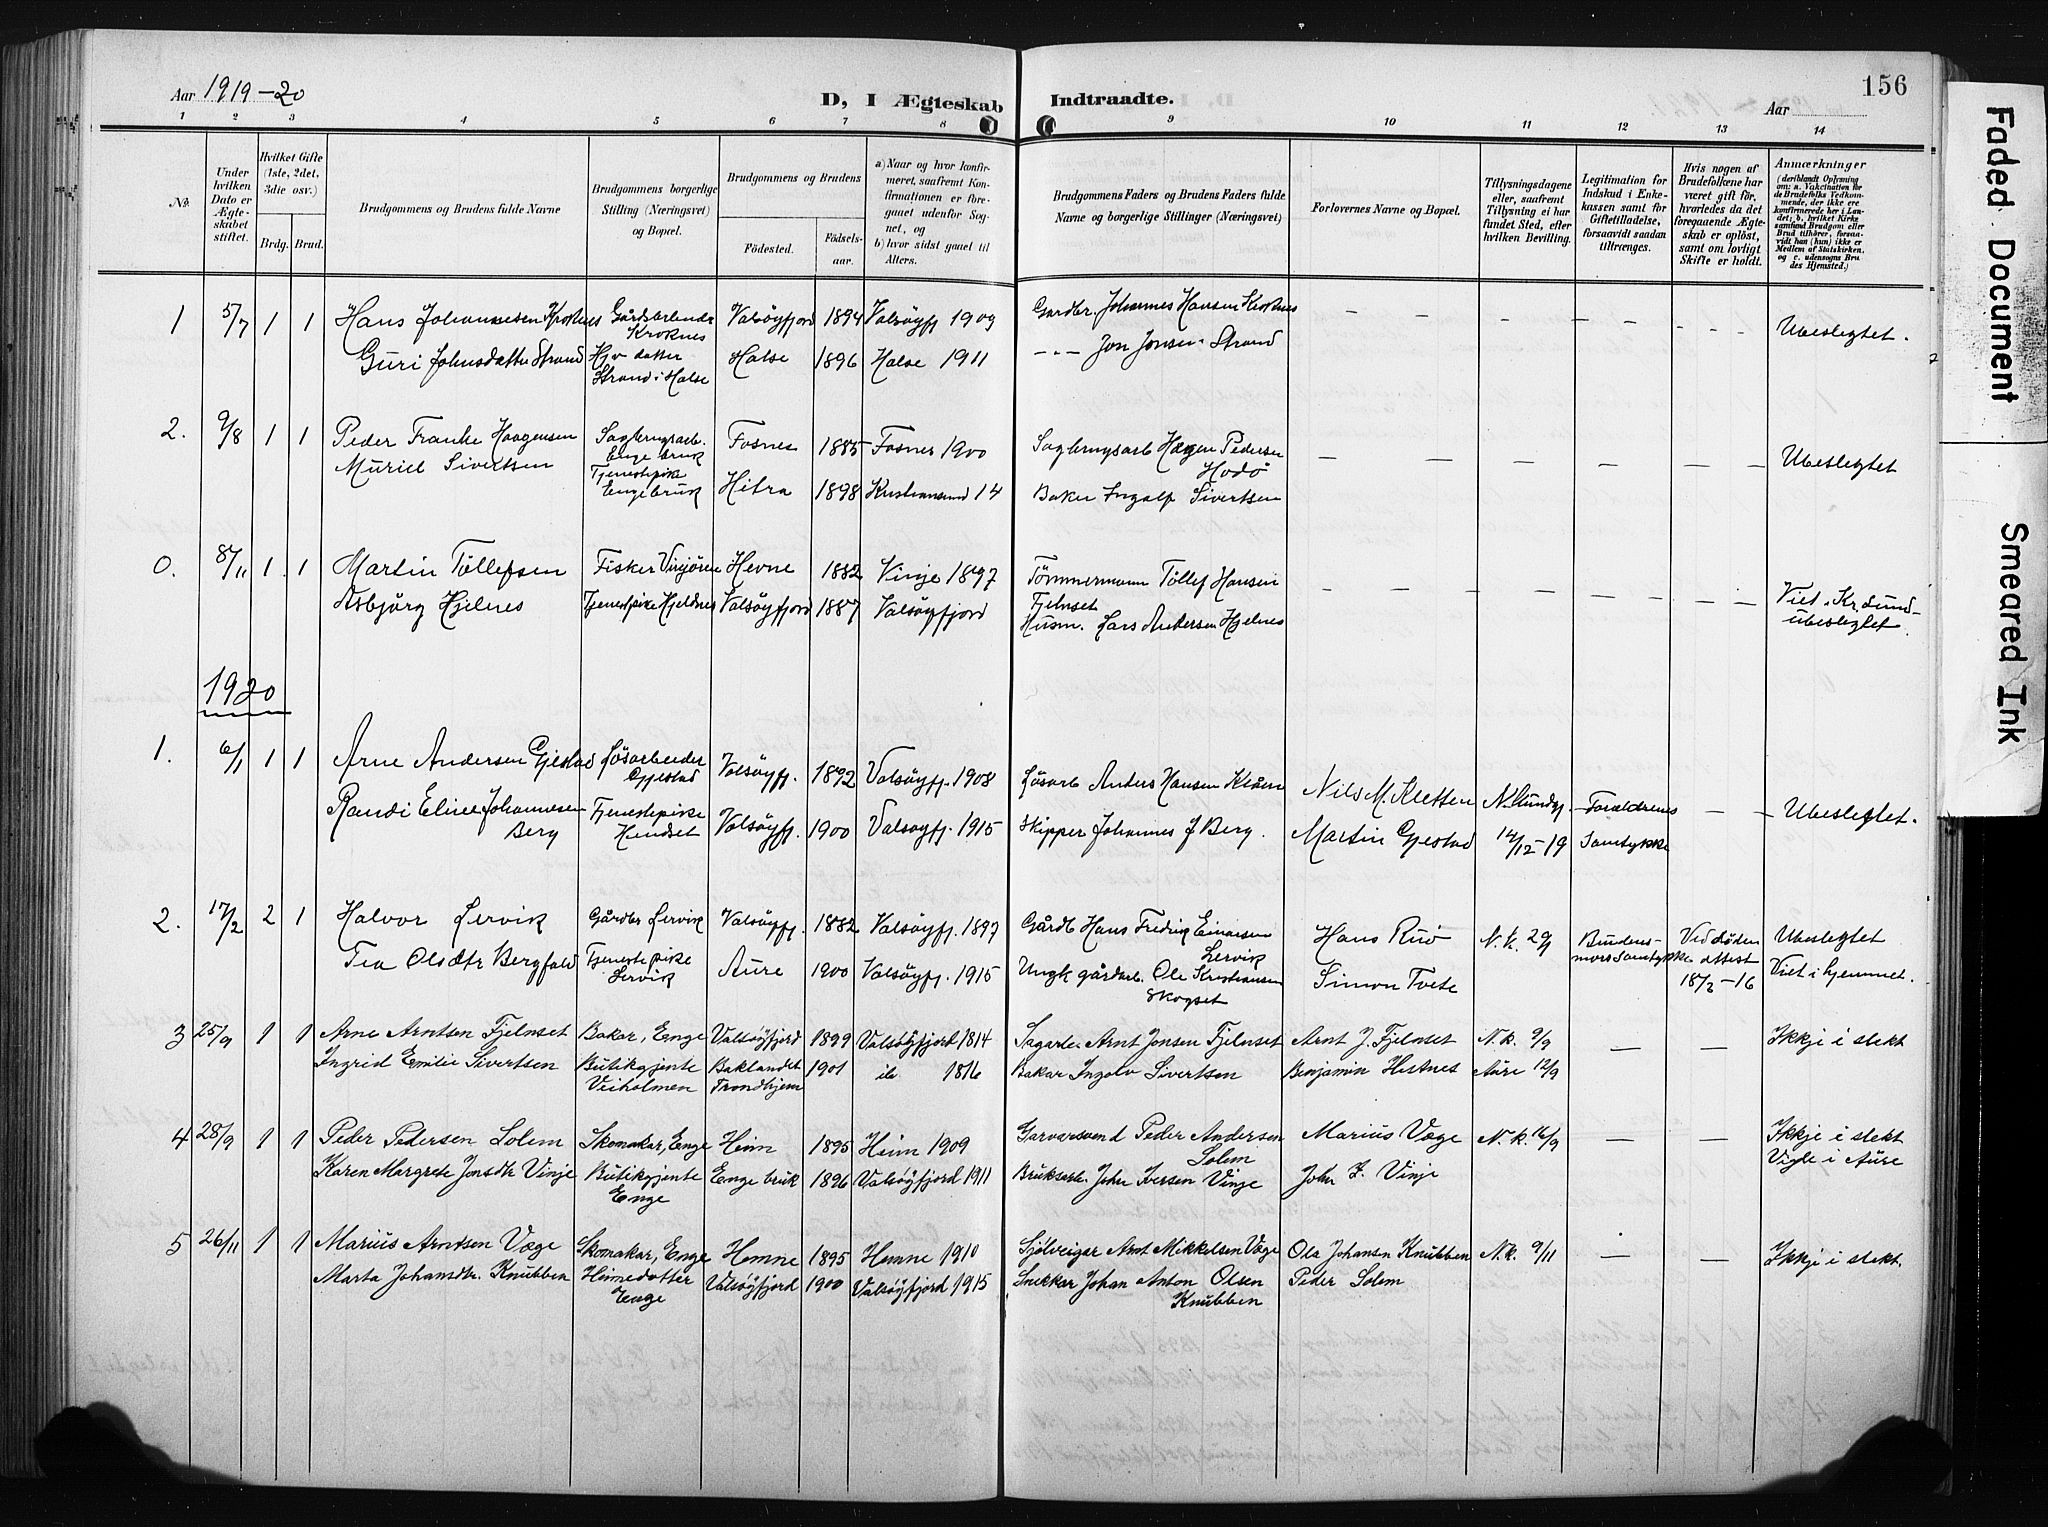 156
Aar 1919-20
D, I Ægteskab Indtraadte.
Aar
1 2 3 4 5 6 7 8 9 10 11 12 13 14
No.
Under hvilken Dato er Ægteskabet stiftet.
Hvilket Gifte (1ste, 2det, 3die osv.)
Brdg. Brud.
Brudgommens og Brudens fulde Navne
Brudgommens borgerlige Stilling (Næringsvei) og Bopæl.
Brudgommens og Brudens
Fødested. Fødselsaar.
a) Naar og hvor konfirmeret, saafremt Konfirmationen er foregaaet udenfor Sognet, og
b) hvor sidst gaaet til Alters.
Brudgommens Faders og Brudens Faders fulde Navne og borgerlige Stillinger (Næringsvei)
Forlovernes Navne og Bopæl.
Tillysningsdagene eller, saafremt Tillysning ei har fundet Sted, efter hvilken Bevilling.
Legitimation for Indskud i Enkekassen samt for Giftetilladelse, forsaavidt saadan tiltrænges.
Hvis nogen af Brudefolkene har været gift før, hvorledes da det foregaaende Ægteskab er opløst, samt om lovligt Skifte er holdt.
Anmærkninger
(deriblandt Oplysning om: a. Vakcination for de Brudefolks Vedkommende, der ikke ere konfirmerede her i Landet; b. hvilket Kirkesamfund Brudgom eller Brud tilhører, forsaavidt han (hun) ikke er Medlem af Statskirken, og c. udensogns Brudes Hjemsted.)
1 5/7 1 1 Hans Johannesen Kroknes Gårdarbeider Kroknes Valsøyfjord 1894 Valsøyfj 1909 Gardbr. Johannes Hansen Kroknes – – – – – Ubeslegtet.
Guri Johnsdatter Strand Hjv datter Strand i Halse Halse 1896 Halse 1911 -"- Jon Jonsen Strand
2. 9/8 1 1 Peder Franke Haagensen Sagbrugsarb. Enge bruk Fosnes 1885 Fosnes 1900 Sagbrugsarb Hagen Pedersen Hodø – – – – – Ubeslegtet
Muriel Sivertsen Tjenestepike Enge bruk Hitra 1898 Kristiansund 14 Baker Ingolf Sivertsen
0. 8/11 1 1 Martin Tøllefsen Fisker Vinjøren Hevne 1882 Vinje 1897 Tømmermann Tøllef Hansen Fjelnset – – – – – Viet i Kr.sund-
Asbjørg Hjelnes Tjenestpike Hjelnes Valsøyfjord 1887 Valsøyfjord Husm. Lars Andersen Hjelnes ubeslegtet
1920
1. 6/1 1 1 Arne Andersen Gjestad Løsarbeider Gjestad Valsøyfj. 1892 Valsøyfj. 1908 Løsarb Anders Hansen Nils M. Kletten N. Sundg. Foreldrenes – – Ubeslegtet.
Randi Eline Johannesen Berg Tjenestepike Hendset Valsøyfj. 1900 Valsøyfj. 1915 Skipper Johannes J Berg. Martin Gjestad 14/12-19 Samtykke
2. 17/2 2 1 Halvor Lervik Gårdbr Lervik Valsøyfj. 1882 Valsøyfj. 1897 Gårdb Hans Fredrik Einarsen Lervik Hans Ruø N.k. Brudens- Ved døden Ubeslegtet
Tea Olsdtr Bergfald Tjenestepike Lervik Aure 1900 Valsøyfj. 1915 Ungk gårdarb. Ole Kristiansen Skogset Simon Tvete mors Samtykke attest 18/2 - 16 Viet i hjemmet.
3 25/9 1 1 Arne Arntsen Fjelnset Bakar, Enge Valsøyfjord 1899 Valsøyfjord 1814 Sagarb. Arnt Jonsen Fjelnset Arnt J. Fjelnset N.k. 9/9 – – Ikkje i slekt
Ingrid Emilie Sivertsen Butikgjente Veiholmen Baklandet Trondhjem 1901 1816 Bakar Ingolv Sivertsen Benjamin Hestnes Aure 12/9
4 28/9 1 1 Peder Pedersen Solem Skomakar, Enge Heim 1895 Heim 1909 Garvarsvend Peder Andersen Solem Marius Væge N.k. 16/9 – – Ikkje i slekt
Karen Margrete Jonsdtr Vinje Butikgjente Enge Enge bruk 1896 Valsøyfjord 1911 Bruksarb. John Iversen Vinje John I. Vinje Vigle i Aure
5 26/11 1 1 Marius Arntsen Væge Skomakar, Enge Hemne 1895 Hemne 1910 Sjølveigar Arnt Mikkelsen Væge Ola Johansn Knubben N.k. 9/11 – – Ikkje i slekt.
Marta Johansdtr. Knubben Heimedotter Enge Valsøyfjord 1900 Valsøyfjord 1915 Snekkar Johan Anton Olsen Knubben Peder Solem
Faded Document
Smeared Ink